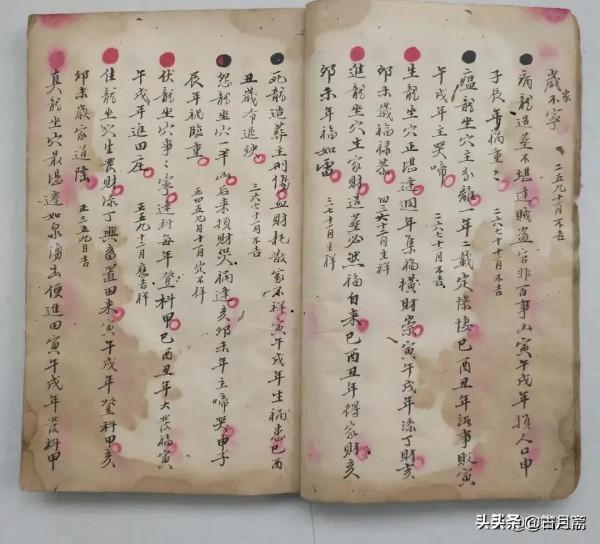 歲家不寧 二五九十二月不吉
病龍造塟不堪逢賊盜官非百事凶寅午戌年損人口申
子辰年禍重々 二六七十一月不吉
瘟龍坐穴主分離一年二載定悽悽巳酉丑年訟事敗寅
午戌年主哭啼 二六七十月不吉
生龍坐穴正堪逢週年集福横財崇寅午戌年添丁財亥
夘未歲福禄恭 四六十二月主祥
進龍坐穴生家財造塟必然福自来巳酉丑年得家財亥
夘未年福如雷 三七十二月主祥
死龍造塟主刑傷血財耗散家不祥寅午戌年生禍患巳酉
丑歲冷退殃 三六七十一月不吉
怨龍坐穴一半凶后来損财哭禍逢亥夘未年主啼哭申子
辰年禍臨重 正四五九月十一月定不祥
伏龍坐穴事々寧逢封每年登科甲巳酉丑年大發福寅
午戌年進田庄 正五九十二月應吉祥
住龍坐穴生財添丁興旺置田来寅午戌年登科甲亥
夘未歲家道隆 正三五九月吉
真龍坐穴最堪遷如泉湧出便進田寅午戌年發科甲
头条 @古月斋